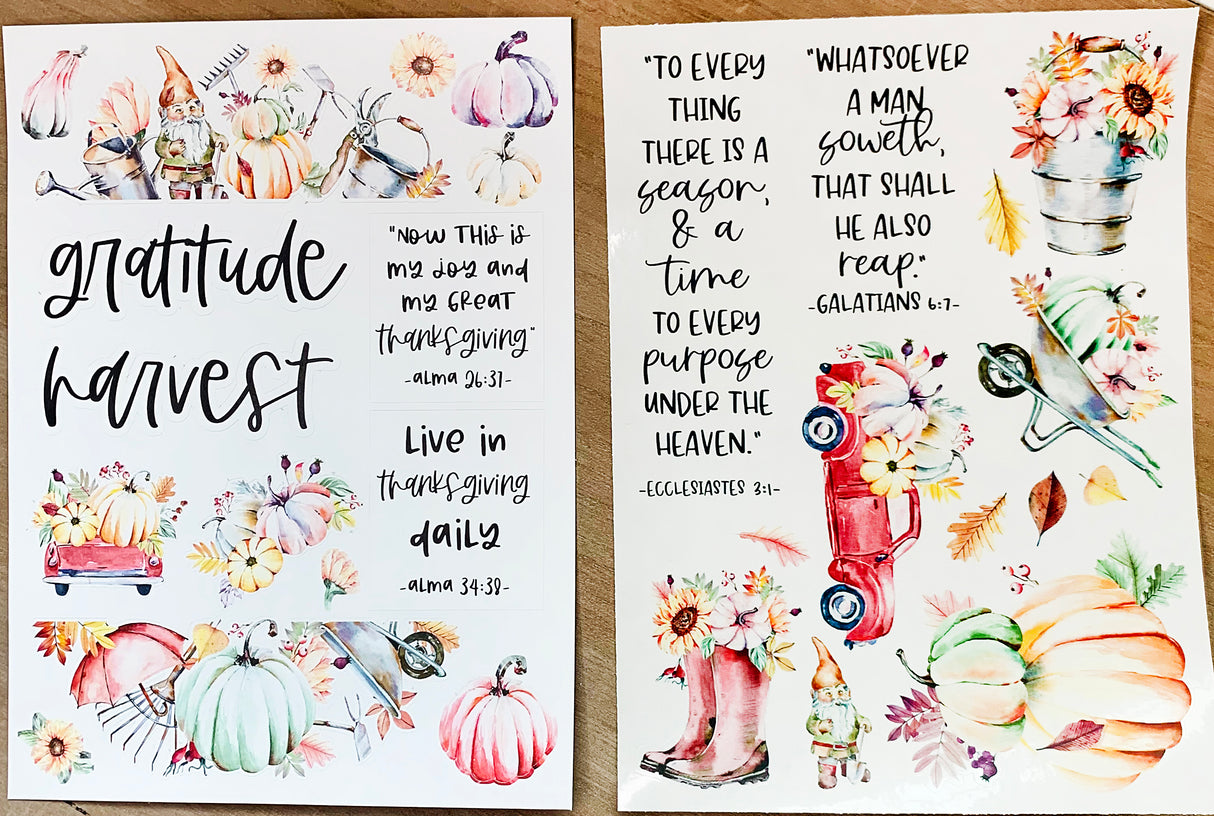 gratitude
harvest
"NOW THIS IS
my JOY and
my GREAT
thanksgiving"
-alma 26:37-
Live in
thanksgiving
daily
-alma 34:38-
"TO EVERY
THING
THERE IS A
season,
& a
time
TO EVERY
purpose
UNDER THE
HEAVEN."
-ECCLESIASTES 3:1-
"WHATSOEVER
A MAN
soweth,
THAT SHALL
HE ALSO
reap."
-GALATIANS 6:7-